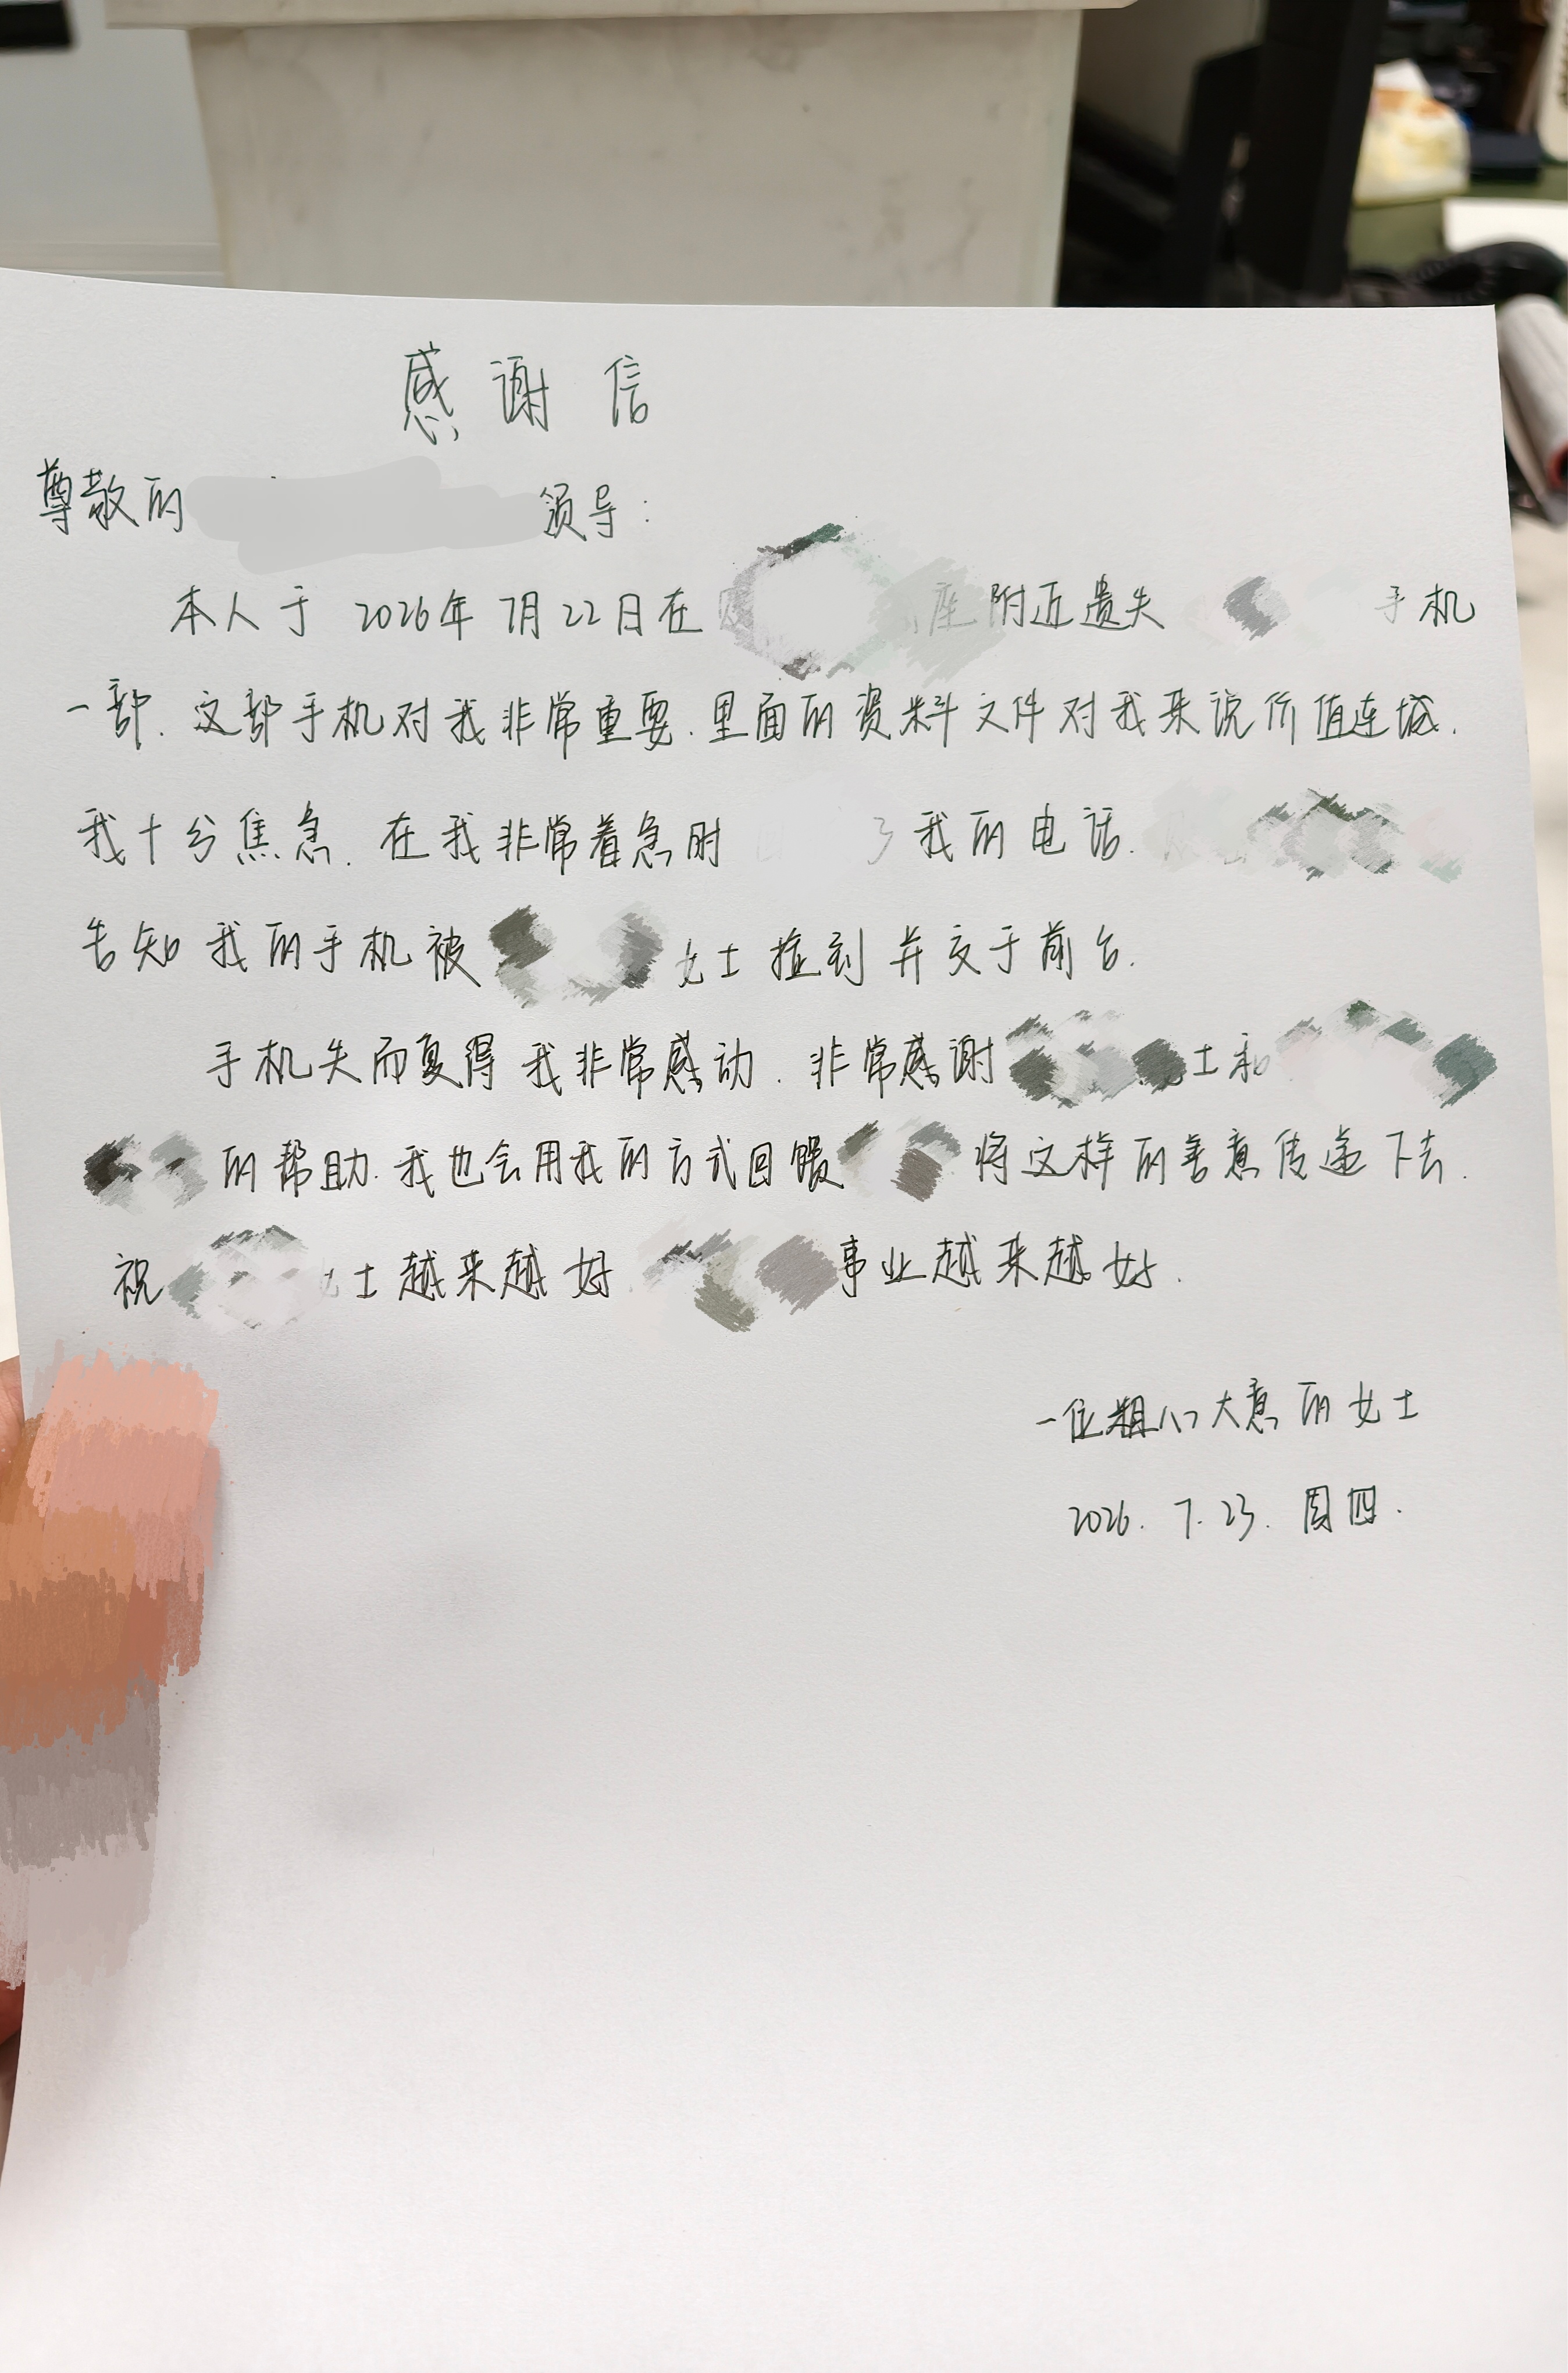 感谢信
尊敬的 领导:
本人于 2026年7月22日在 座附近遗失 手机
一部. 这部手机对我非常重要. 里面的资料文件对我来说价值连城.
我十分焦急. 在我非常着急时 了我的电话.
告知我的手机被 女士捡到并交于前台.
手机失而复得 我非常感动. 非常感谢 士和
的帮助. 我也会用我的方式回馈 将这样的善意传递下去.
祝 士越来越好 事业越来越好.
一位粗心大意的女士
2026. 7. 23. 周四.